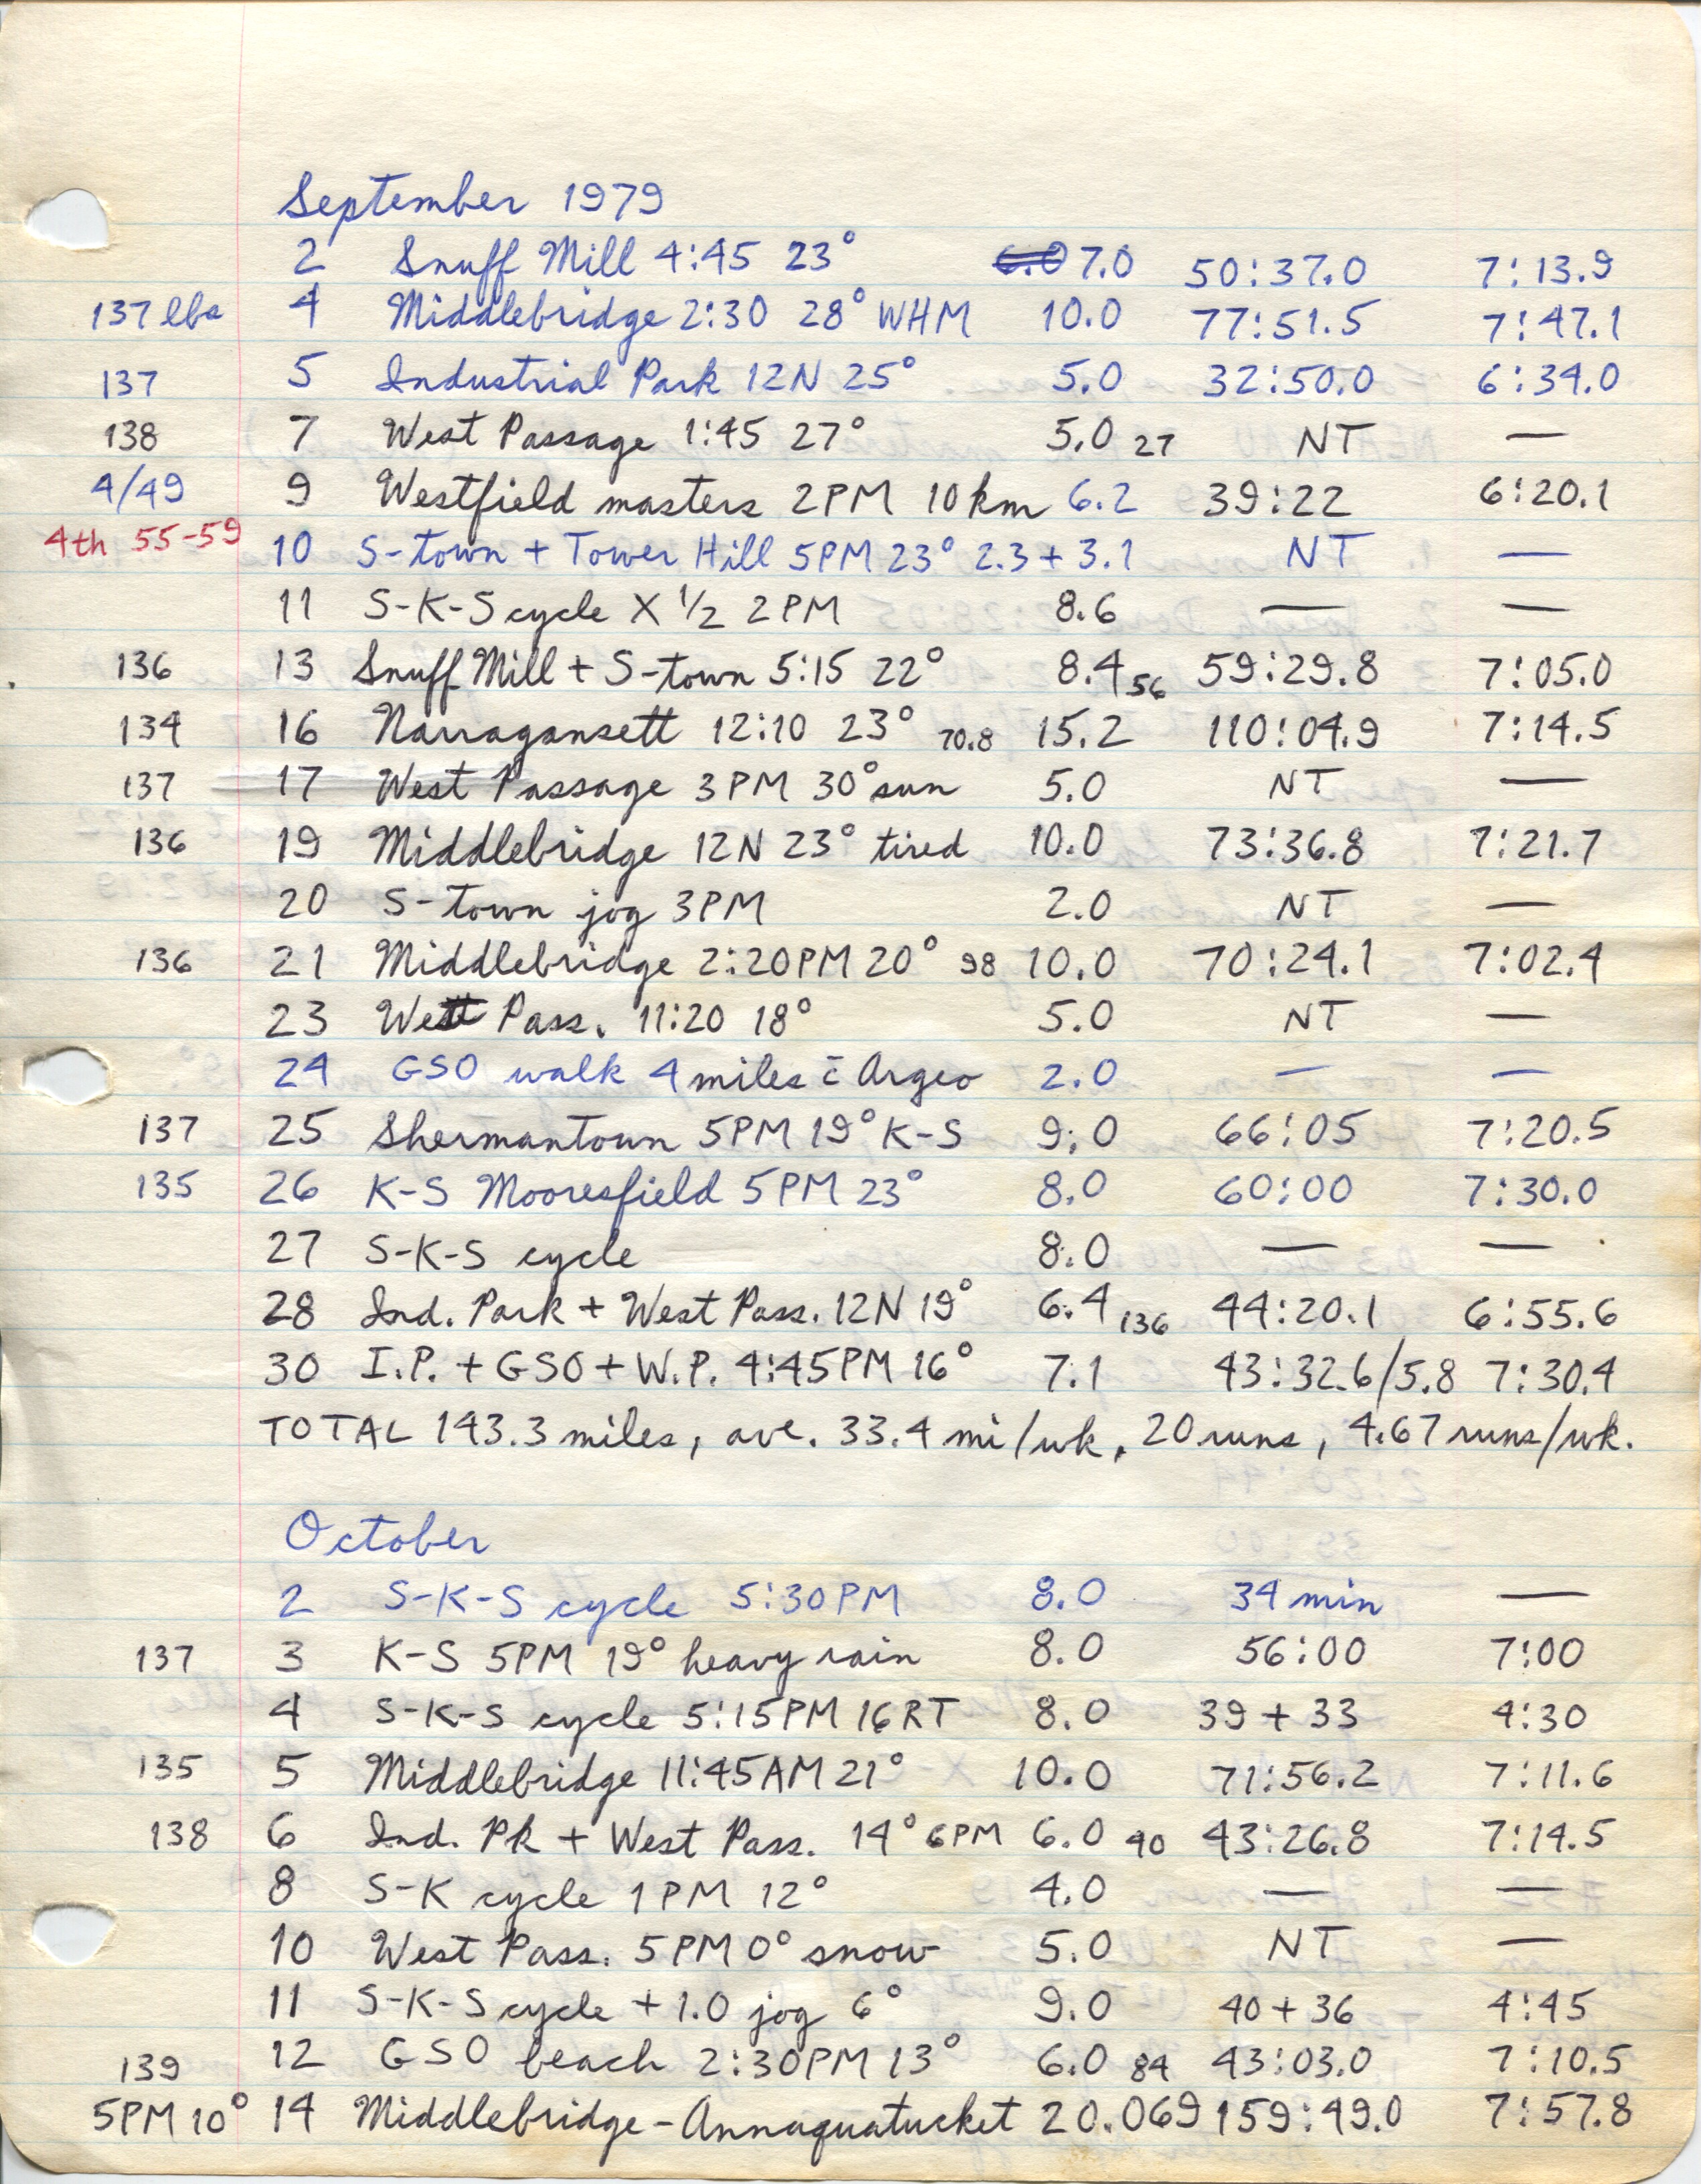 September 1979
2 Snuff Mill 4:45 23° 7.0 50:37.0 7:13.9
137 lbs 4 Middlebridge 2:30 28° WHM 10.0 77:51.5 7:47.1
137 5 Industrial Park 12N 25° 5.0 32:50.0 6:34.0
138 7 West Passage 1:45 27° 5.0 27 NT —
4/49 9 Westfield masters 2PM 10km 6.2 39:22 6:20.1
4th 55-59 10 S-town + Tower Hill 5PM 23° 2.3 + 3.1 NT —
11 S-K-S cycle X 1/2 2PM 8.6 — —
136 13 Snuff Mill + S-town 5:15 22° 8.4 56 59:29.8 7:05.0
134 16 Narragansett 12:10 23° 70.8 15.2 110:04.9 7:14.5
137 17 West Passage 3PM 30° sun 5.0 NT —
136 19 Middlebridge 12N 23° tired 10.0 73:36.8 7:21.7
20 S-town jog 3PM 2.0 NT —
136 21 Middlebridge 2:20PM 20° 98 10.0 70:24.1 7:02.4
23 West Pass. 11:20 18° 5.0 NT —
24 GSO walk 4 miles c̄ Argeo 2.0 — —
137 25 Shermantown 5PM 19° K-S 9.0 66:05 7:20.5
135 26 K-S Mooresfield 5PM 23° 8.0 60:00 7:30.0
27 S-K-S cycle 8.0 — —
28 Ind. Park + West Pass. 12N 19° 6.4 136 44:20.1 6:55.6
30 I.P. + GSO + W.P. 4:45PM 16° 7.1 43:32.6/5.8 7:30.4
TOTAL 143.3 miles, ave. 33.4 mi/wk, 20 runs, 4.67 runs/wk.
October
2 S-K-S cycle 5:30PM 8.0 34 min —
137 3 K-S 5PM 19° heavy rain 8.0 56:00 7:00
4 S-K-S cycle 5:15PM 16RT 8.0 39 + 33 4:30
135 5 Middlebridge 11:45AM 21° 10.0 71:56.2 7:11.6
138 6 Ind. Pk + West Pass. 14° 6PM 6.0 40 43:26.8 7:14.5
8 S-K cycle 1PM 12° 4.0 — —
10 West Pass. 5PM 0° snow 5.0 NT —
11 S-K-S cycle + 1.0 jog 6° 9.0 40 + 36 4:45
139 12 GSO beach 2:30PM 13° 6.0 84 43:03.0 7:10.5
5PM 10° 14 Middlebridge-Annaquatucket 20.069 159:49.0 7:57.8